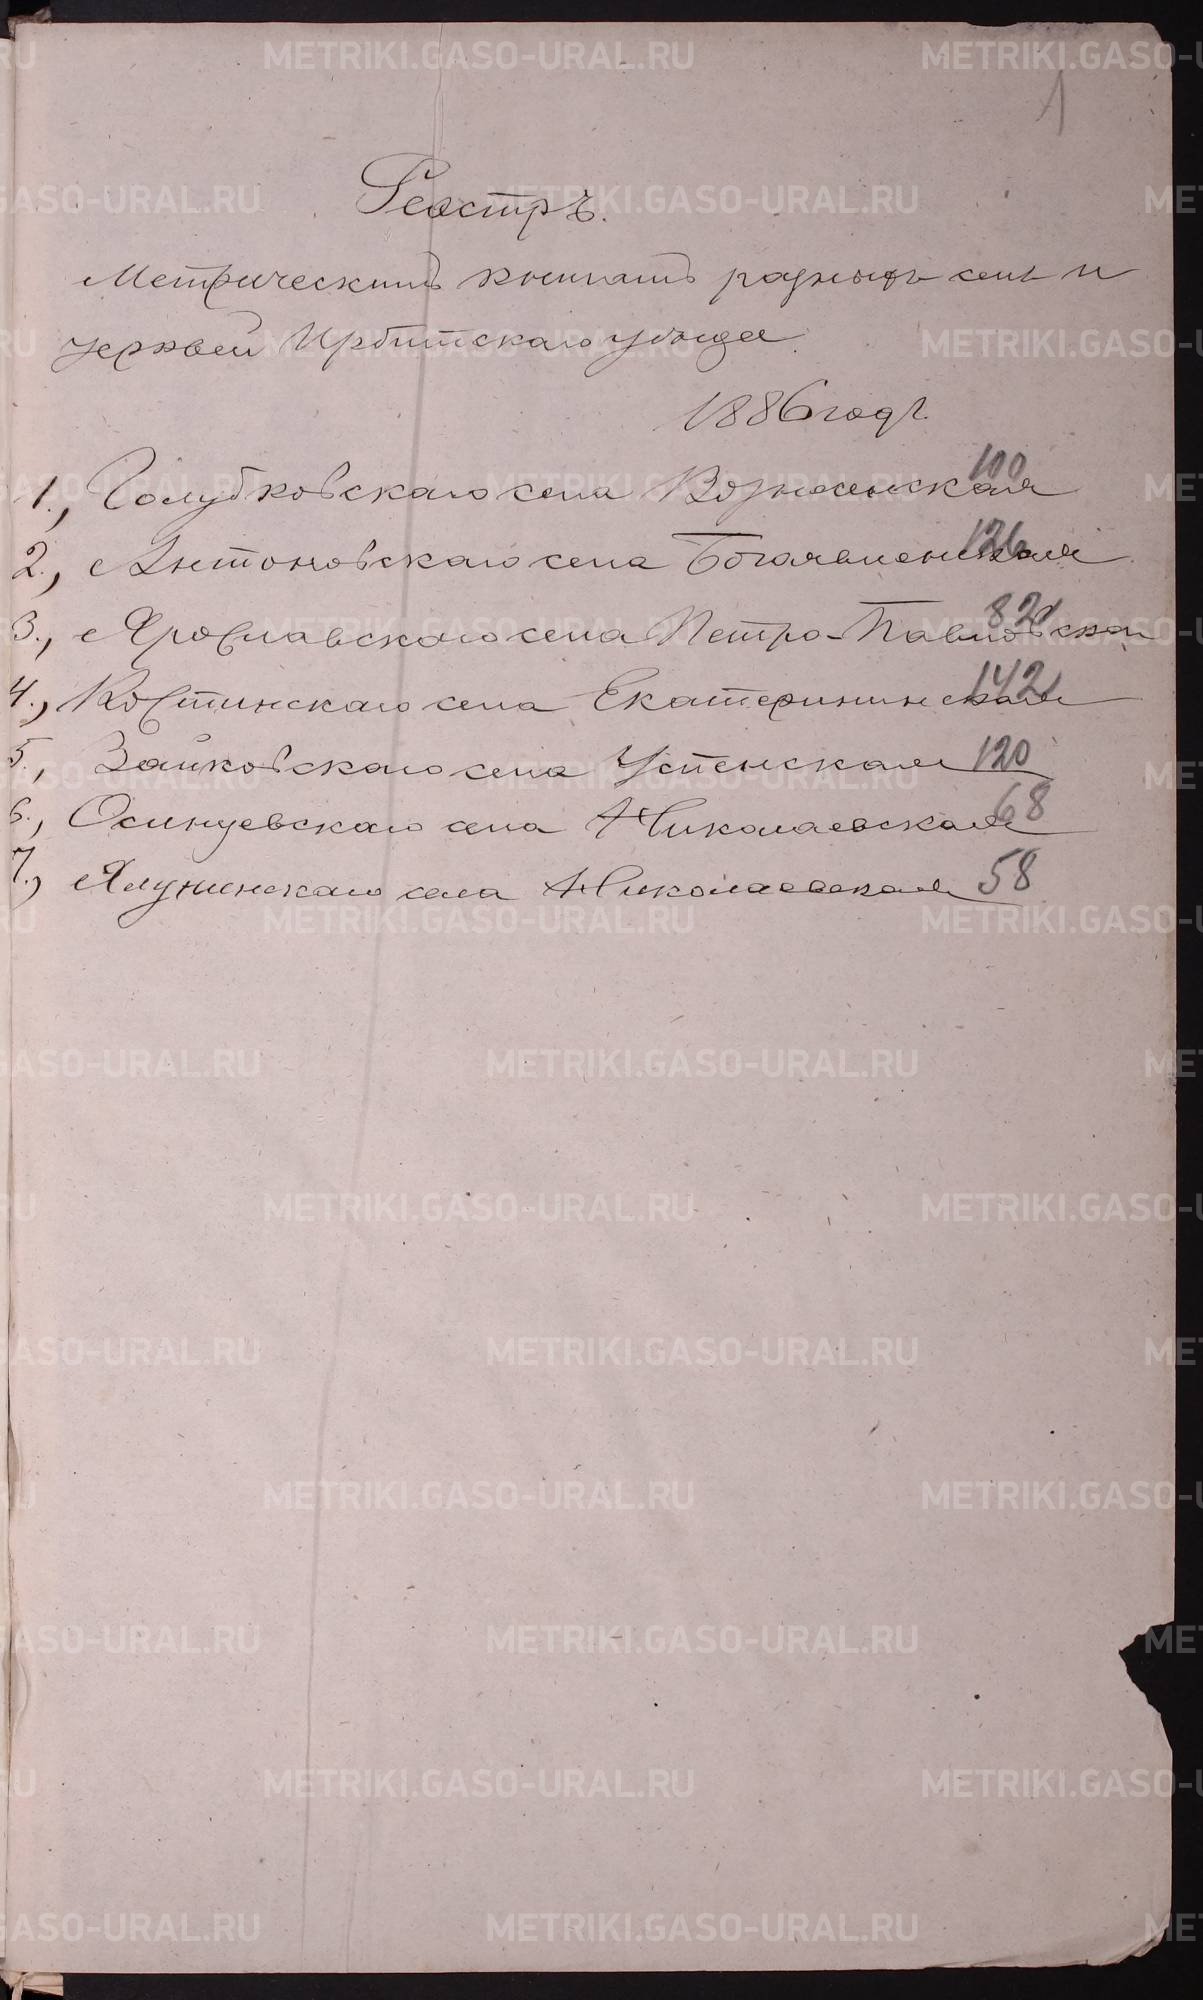 1
Реестръ.
Метрическимъ книгамъ разныхъ селъ и
церквей Ирбитскаго уѣзда.
1886 годъ.
1., Голубковскаго села Вознесенская 100
2., Антоновскаго села Богоявленская 126
3., Ярославскаго села Петро-Павловская 82
4., Костинскаго села Екатерининская 142
5., Зайковскаго села Успенская 120
6., Осинцевскаго села Николаевская 68
7., Ялунинскаго села Николаевская 58